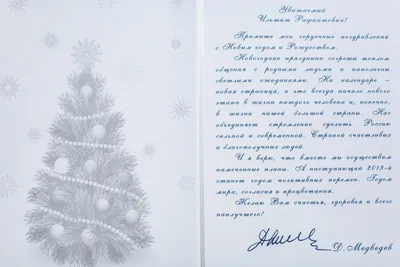 Уважаемый
Ильшат Рафкатович!
Примите мои сердечные поздравления
с Новым годом и Рождеством.
Новогодние праздники согреты теплом
общения с родными людьми и наполнены
светлыми ожиданиями. На календаре –
новая страница, и это всегда начало нового
этапа в жизни каждого человека и, конечно,
в жизни нашей большой страны. Нас
объединяет стремление сделать Россию
сильной и современной. Страной счастливых
и благополучных людей.
И я верю, что вместе мы осуществим
намеченные планы. А наступающий 2019-й
станет годом позитивных перемен. Годом
мира, согласия и процветания.
Желаю Вам счастья, здоровья и всего
наилучшего!
Д. Медведев